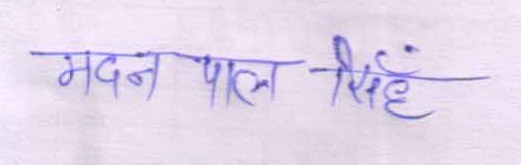 मदन पाल सिहँ